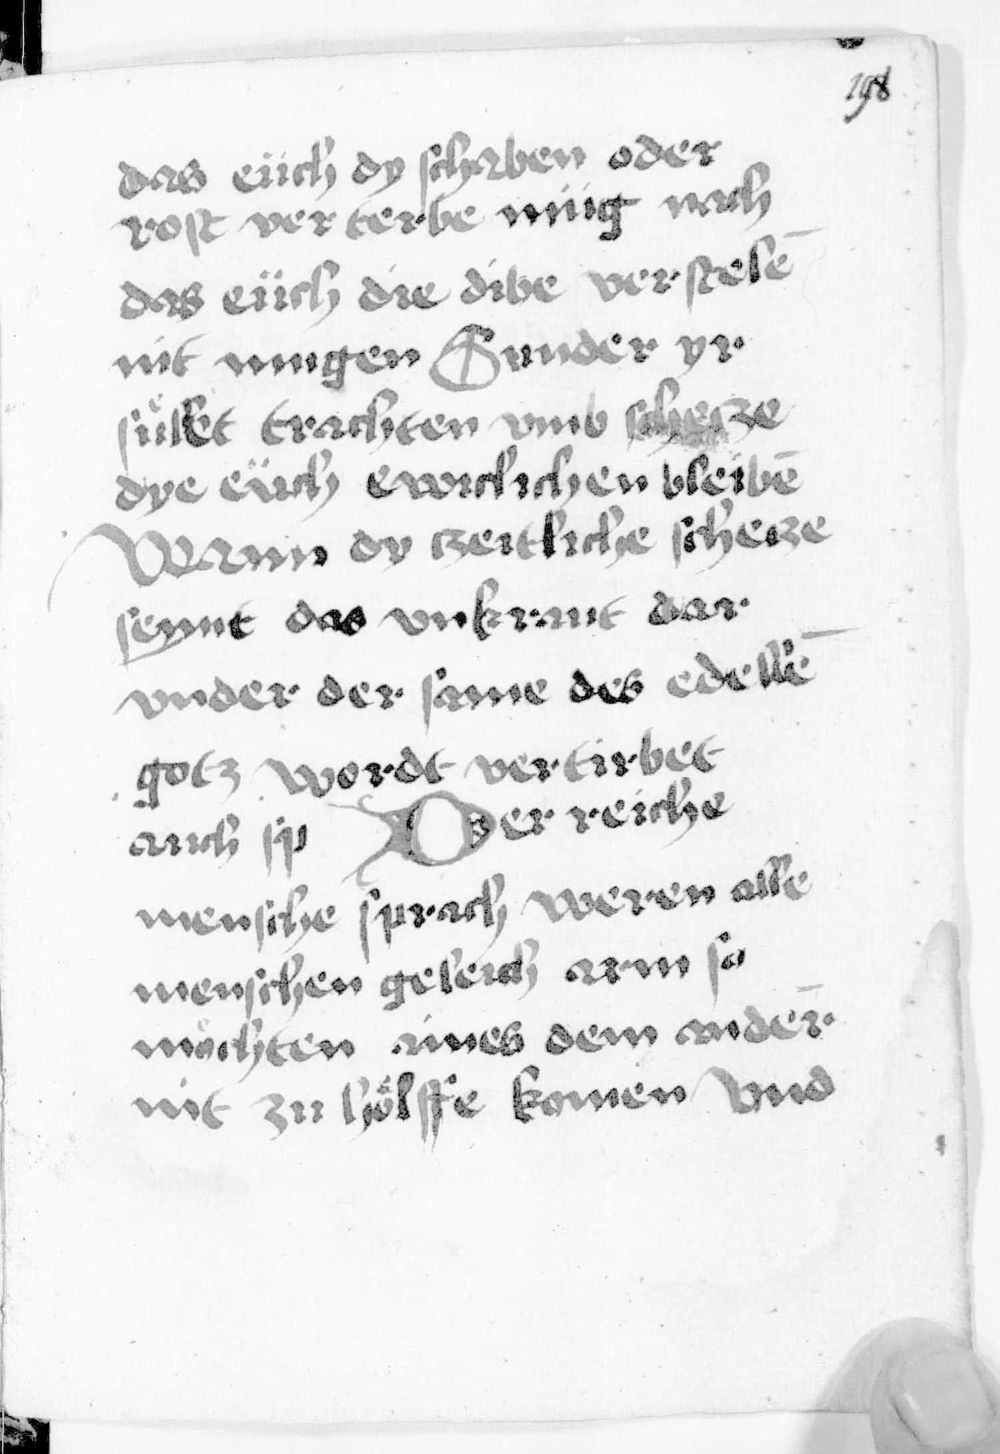 198
das eüch dy schaben oder
rost verterbe müg nach
das eüch die dibe verstelē
nit mugen Sunder yr
süllet trachten vmb schecze
dye eüch ewiclichen bleibē
Wann dy czeitliche schecze
seynt das vnkraut dar
vnder der same des edellē
gotz wordt vertirbet
auch sp Der reiche
mensche sprach weren alle
menschen geleich arm so
möchten aines dem andēr
nit zu hölffe komen Vnd